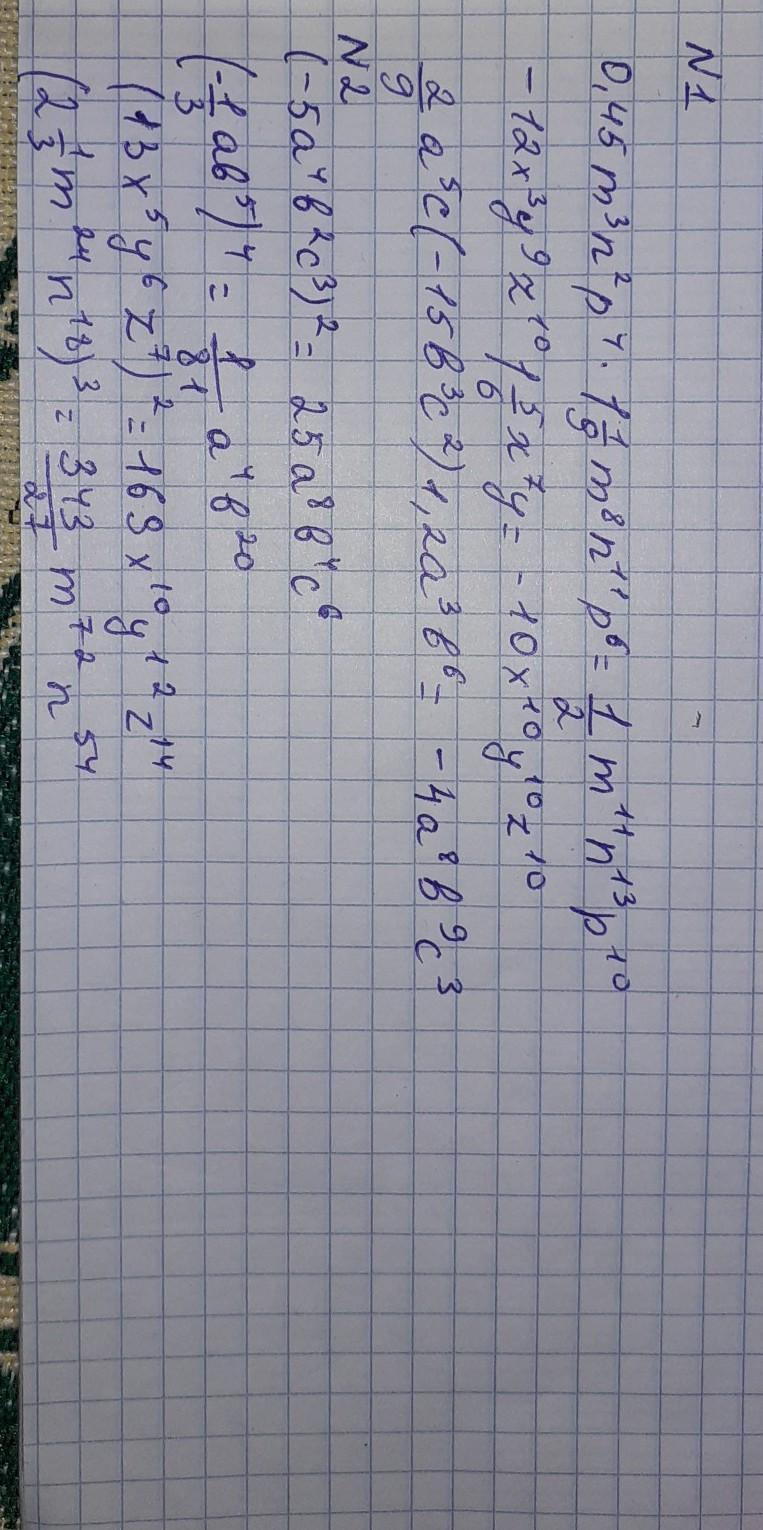 N1
0,45 m³n²p⁴ · 1 1/9 m⁸n¹¹p⁶ = 1/2 m¹¹n¹³p¹⁰
-12x³y⁹z¹⁰ 1 5/6 x⁷y = -10x¹⁰y¹⁰z¹⁰
2/9 a⁵c(-15b³c²)1,2a³b⁶ = -4a⁸b⁹c³
N2
(-5a⁴b²c³)² = 25a⁸b⁴c⁶
(-1/3 ab⁵)⁴ = 1/81 a⁴b²⁰
(13x⁵y⁶z⁷)² = 169x¹⁰y¹²z¹⁴
(2 1/3 m²⁴n¹⁸)³ = 343/27 m⁷²n⁵⁴